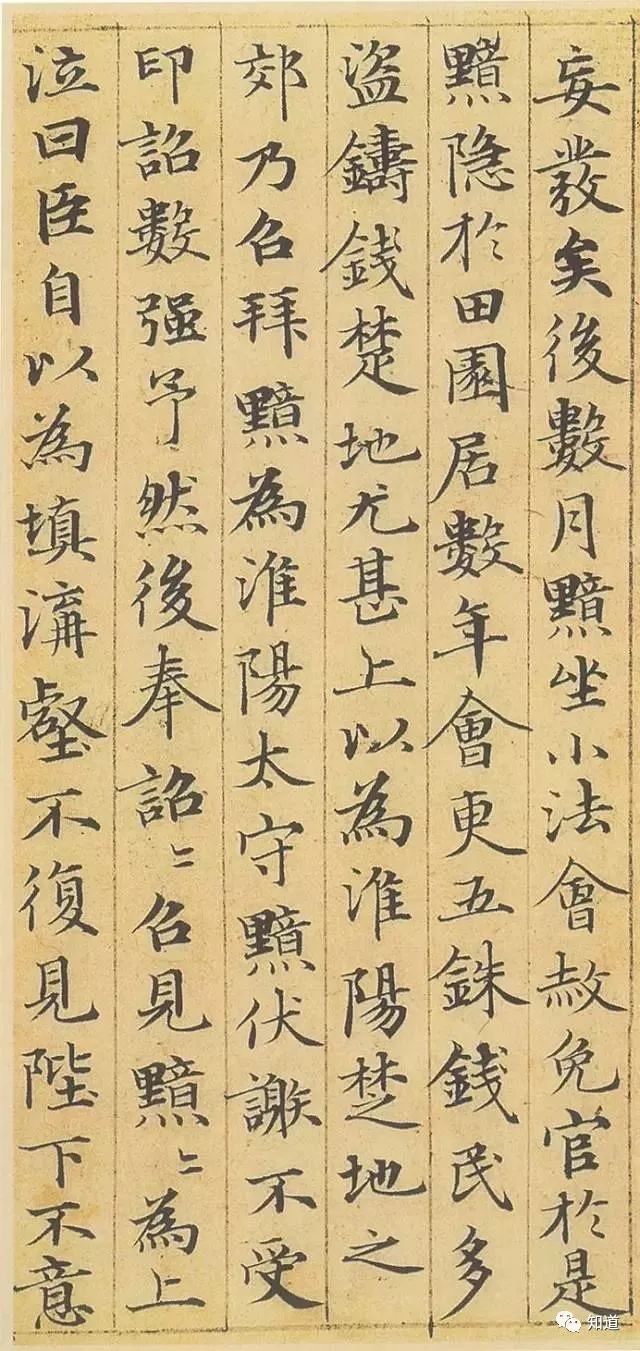 妄發矣後數月黯坐小法會赦免官於是
黯隱於田園居數年會更五銖錢民多
盜鑄錢楚地尤甚上以為淮陽楚地之
郊乃召拜黯為淮陽太守黯伏謝不受
印詔數强予然後奉詔〻召見黯〻為上
泣曰臣自以為填溝壑不復見陛下不意
知道